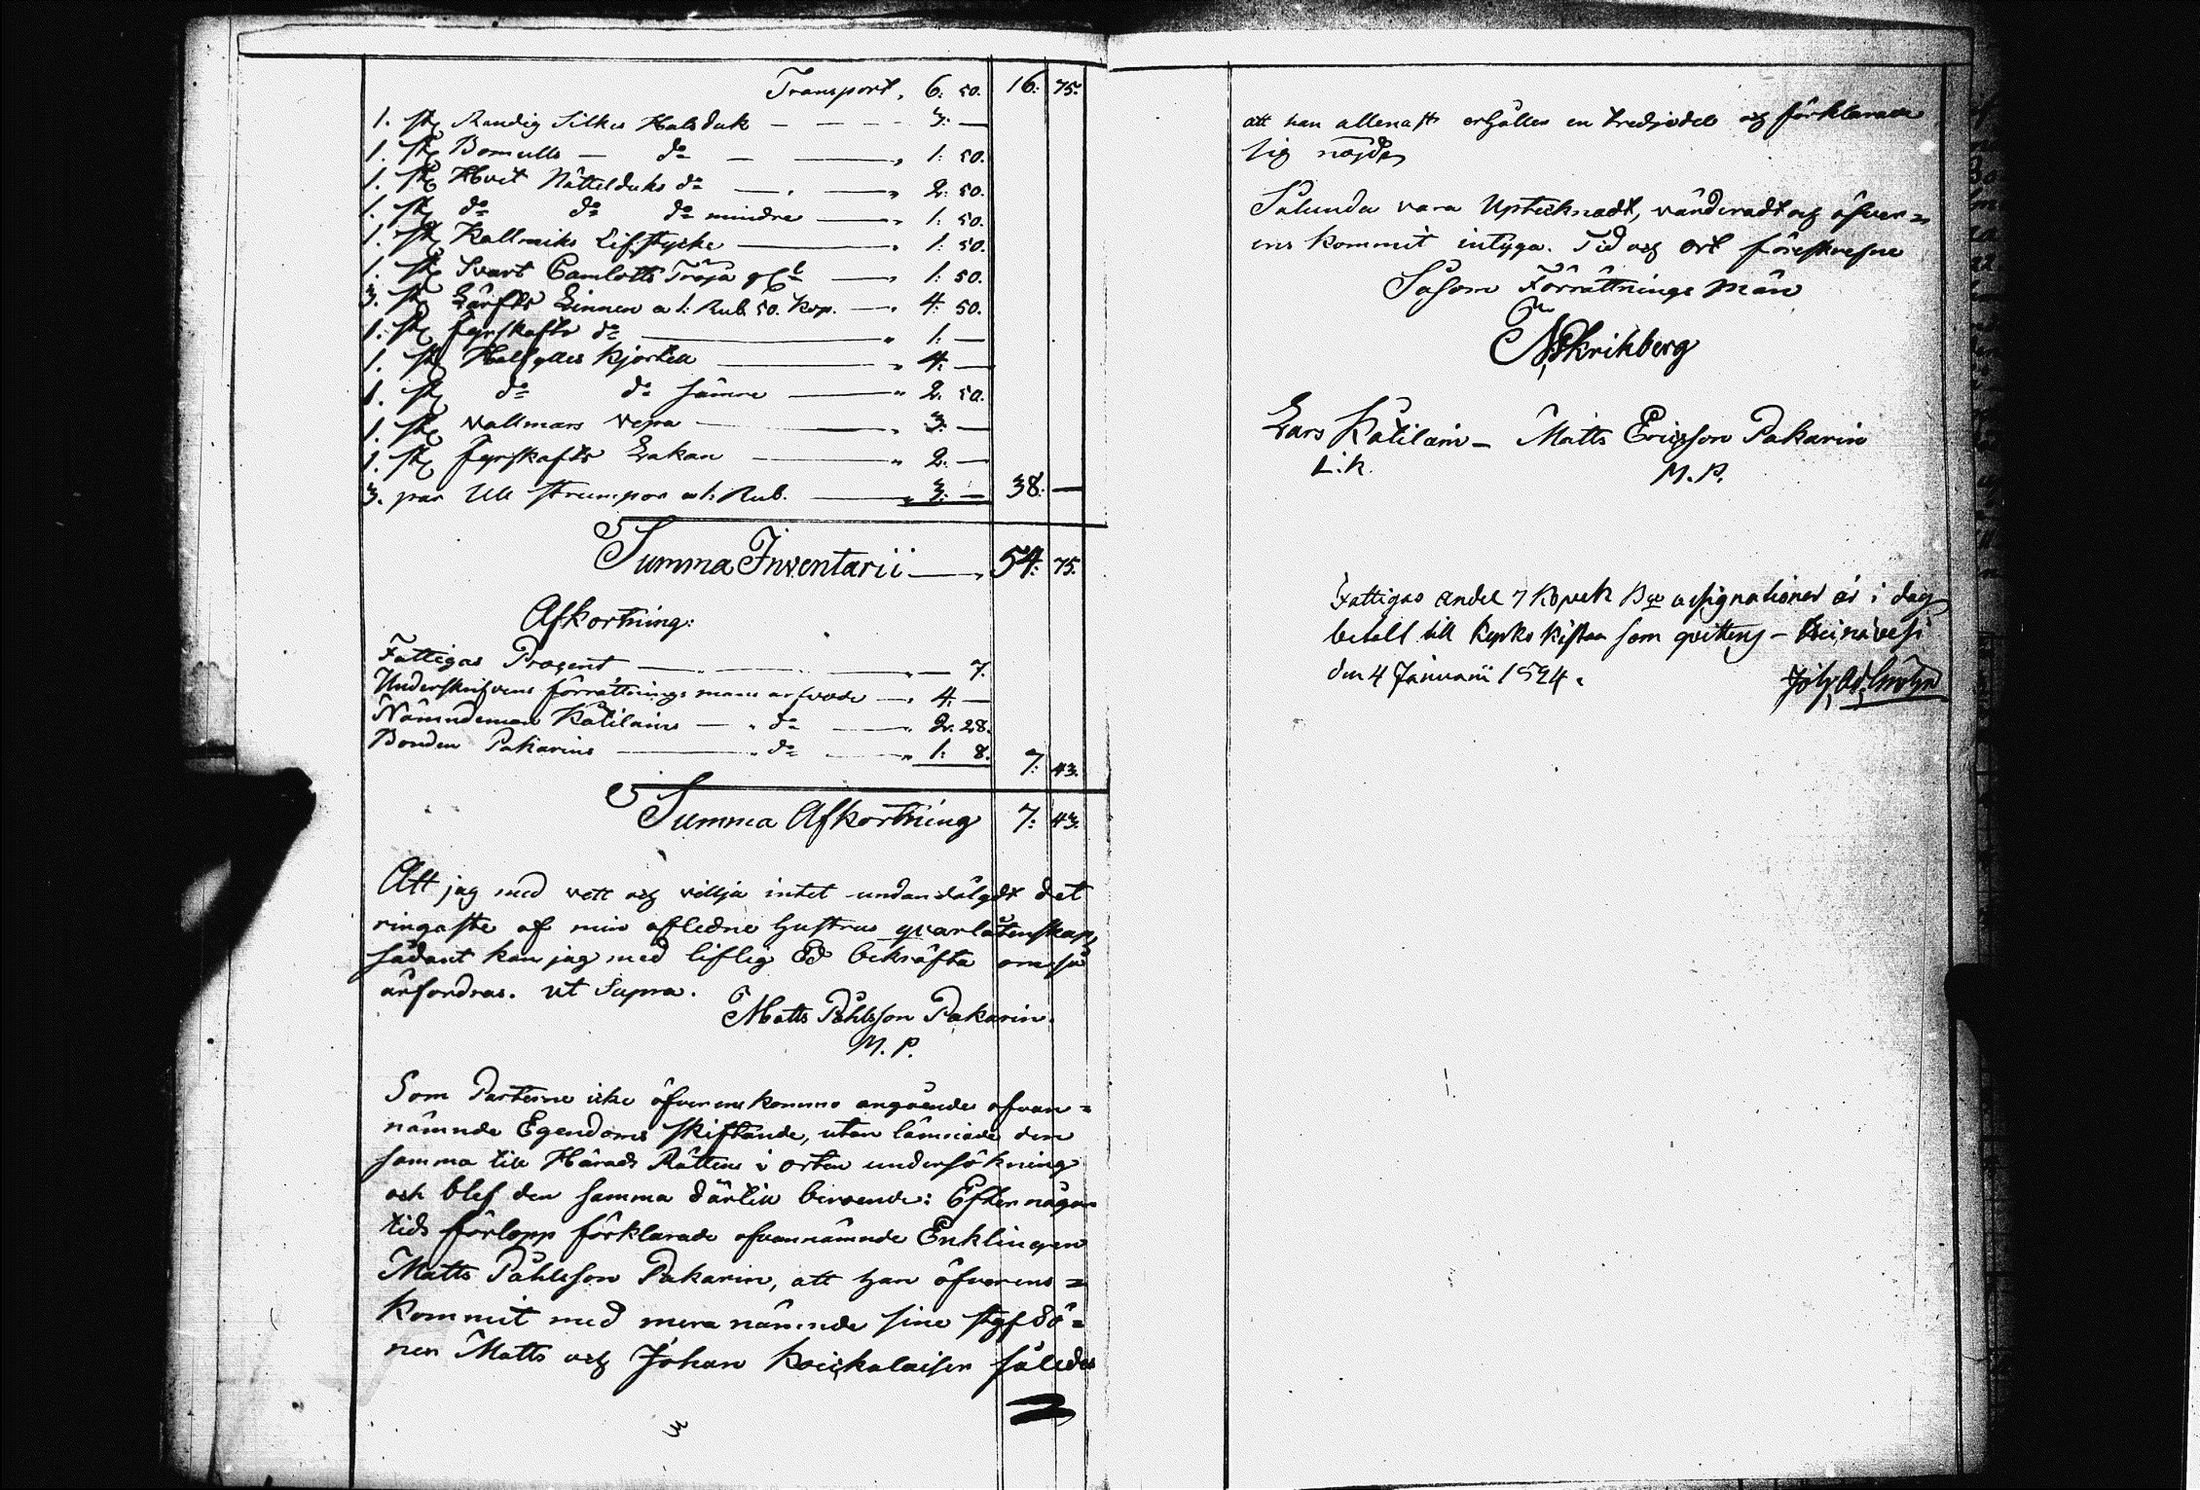 Transport, 6: 50. 16: 75.
1. st Randig Silkes Halsduk — 3: —
1. st Bomulls — do — 1: 50.
1. st Hvit Nätelduks do — 2: 50.
1. st do do do mindre — 1: 50.
1. st Kallminks Lifstycke — 1: 50.
1. st Svart Camlotts Tröja — 1: 50.
3. st Lärfts Linnen a 1: Rub. 50. Kop. — 4: 50.
1. st fyrskafts do — 1: —
1. st Halfylles Kjortell — 4: —
1. st do do sämre — 2: 50.
1. st vallmars vepa — 3: —
1. st fyrskafts Lakan — 2: —
3. par Ull strumpor a 1: Rub. — 3: — 38: —
Summa Inventarii — 54: 75.
Afkortning:
Fattigas Procent — 7.
Underskrifvens förrättnings mans arfvode — 4: —
Nämndeman Kätilains — do — 2: 28.
Bonden Pakarins — do — 1: 8. 7: 43.
Summa Afkortning 7: 43.
Att jag med vett och villja intet undandölgdt det
ringaste af min afledne hustrus qvarlåtenskap,
sådant kan jag med liflig Ed bekräfta om så
ärfordras. ut Supra.
Matts Påhlsson Pakarin.
M. P.
Som Parterne icke öfverenskomma angående ofvan=
nämnde Egendoms skiftande, utan lämnade den
samma till Härads Rättens i orten undersökning
och blef den samma därtill beroende: Efter någon
tids förlopp förklarade ofvannämnde Enklingen
Matts Påhlsson Pakarin, att han öfverens=
kommit med mera nämnde sine styfsö=
ner Matts och Johan Koickalaisen således
att han allenast erhåller en tredjedel och förklarade
sig nöjde,
Sålunda vara Uptecknadt, värderadt och öfver=
ens kommit intyga. Tid och ort föreskrefne
Såsom Förrättnings Män
Skrikberg
Lars Kätilain — Matts Ericsson Pakarin
L. K. M. P.
Fattigas andel 7 Kopek Bco assignationer är i dag
betalt till Kyrko Kistan som qvitteras — Heinävesi
den 4 Januarii 1824.
Joh. Ad.